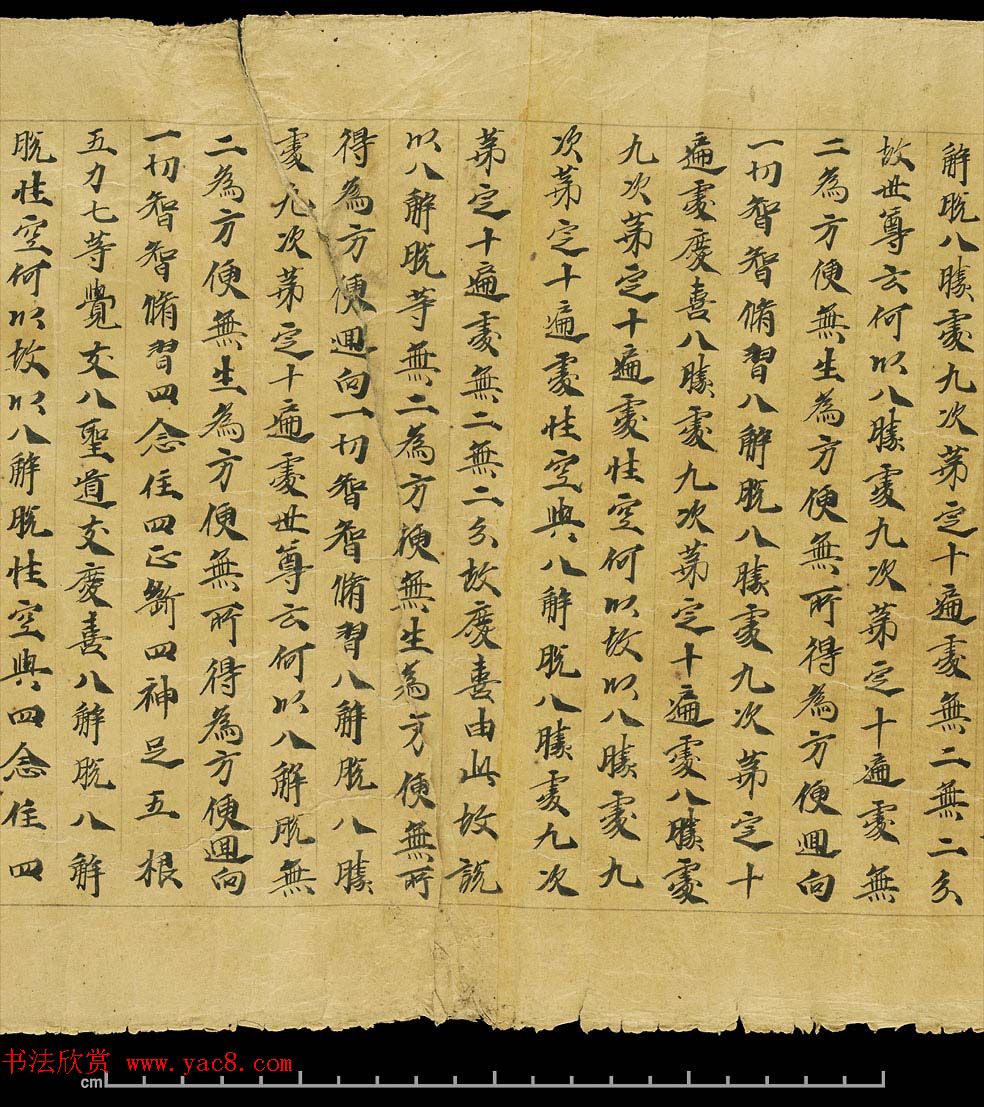 解脫八勝處九次第定十遍處無二無二分
故世尊云何以八勝處九次第定十遍處無
二為方便無生為方便無所得為方便迴向
一切智智脩習八解脫八勝處九次第定十
遍處慶喜八勝處九次第定十遍處八勝處
九次第定十遍處性空何以故以八勝處九
次第定十遍處性空與八解脫八勝處九次
第定十遍處無二無二分故慶喜由此故說
以八解脫等無二為方便無生為方便無所
得為方便迴向一切智智脩習八解脫八勝
處九次第定十遍處世尊云何以八解脫無
二為方便無生為方便無所得為方便迴向
一切智智脩習四念住四正斷四神足五根
五力七等覺支八聖道支慶喜八解脫八解
脫性空何以故以八解脫性空與四念住四
书法欣赏 www.yac8.com
cm